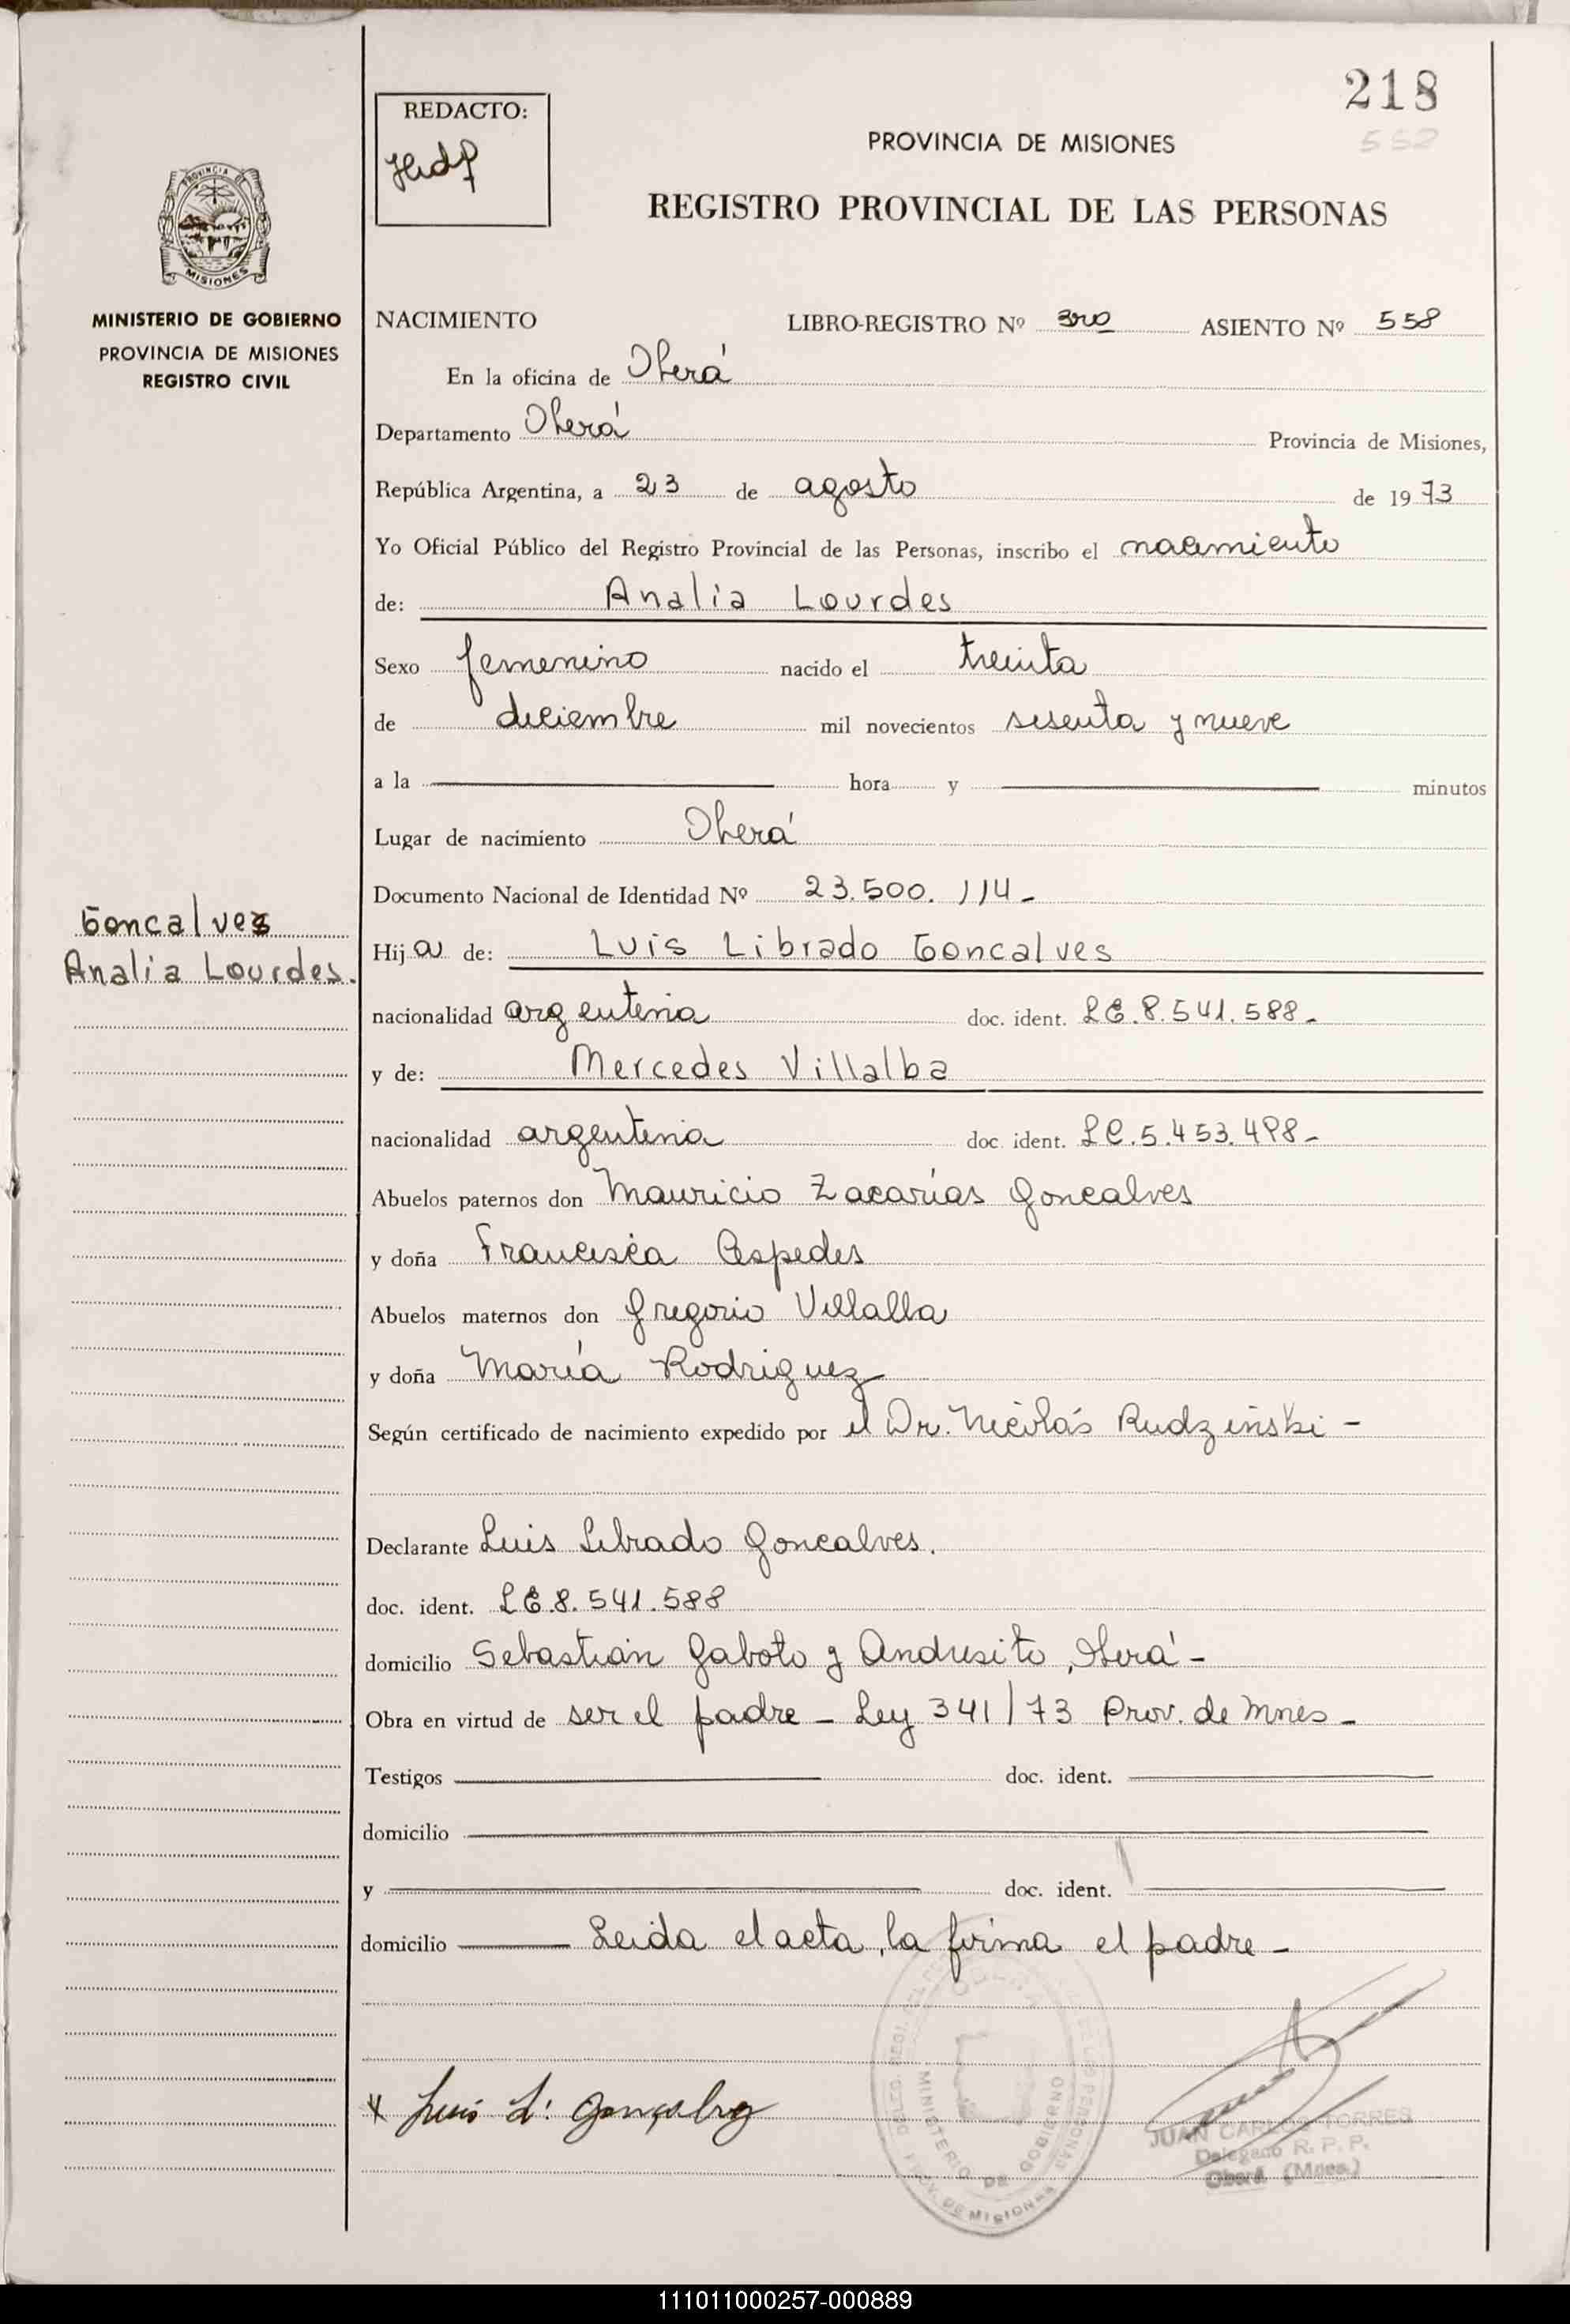 218
558
REDACTO:
PROVINCIA DE MISIONES
REGISTRO PROVINCIAL DE LAS PERSONAS
PROVINCIA DE
MISIONES
MINISTERIO DE GOBIERNO
PROVINCIA DE MISIONES
REGISTRO CIVIL
NACIMIENTO LIBRO-REGISTRO Nº 3ro ASIENTO Nº 558
En la oficina de Oberá
Departamento Oberá Provincia de Misiones,
República Argentina, a 23 de agosto de 1973
Yo Oficial Público del Registro Provincial de las Personas, inscribo el nacimiento
de: Analia Lourdes
Sexo femenino nacido el treinta
de diciembre mil novecientos sesenta y nueve
a la hora y minutos
Lugar de nacimiento Oberá
Documento Nacional de Identidad Nº 23.500.114-
Goncalves
Analia Lourdes.
Hija de: Luis Librado Goncalves
nacionalidad argentina doc. ident. LE.8.541.588-
y de: Mercedes Villalba
nacionalidad argentina doc. ident. LC.5.453.498-
Abuelos paternos don Mauricio Zacarías Goncalves
y doña Francisca Cespedes
Abuelos maternos don Gregorio Villalba
y doña María Rodriguez
Según certificado de nacimiento expedido por el Dr. Nicolás Rudzinski -
Declarante Luis Librado Goncalves.
doc. ident. LE.8.541.588
domicilio Sebastián Gaboto y Andresito, Oberá-
Obra en virtud de ser el padre - Ley 341/73 Prov. de Mnes-
Testigos doc. ident.
domicilio
y doc. ident.
domicilio Leida el acta, la firma el padre-
Luis L. Gonçalvez
MINISTERIO DE GOBIERNO
PROV. DE MISIONES
JUAN CARLOS TORRES
Delegado R. P. P.
Oberá (Mnes.)
111011000257-000889